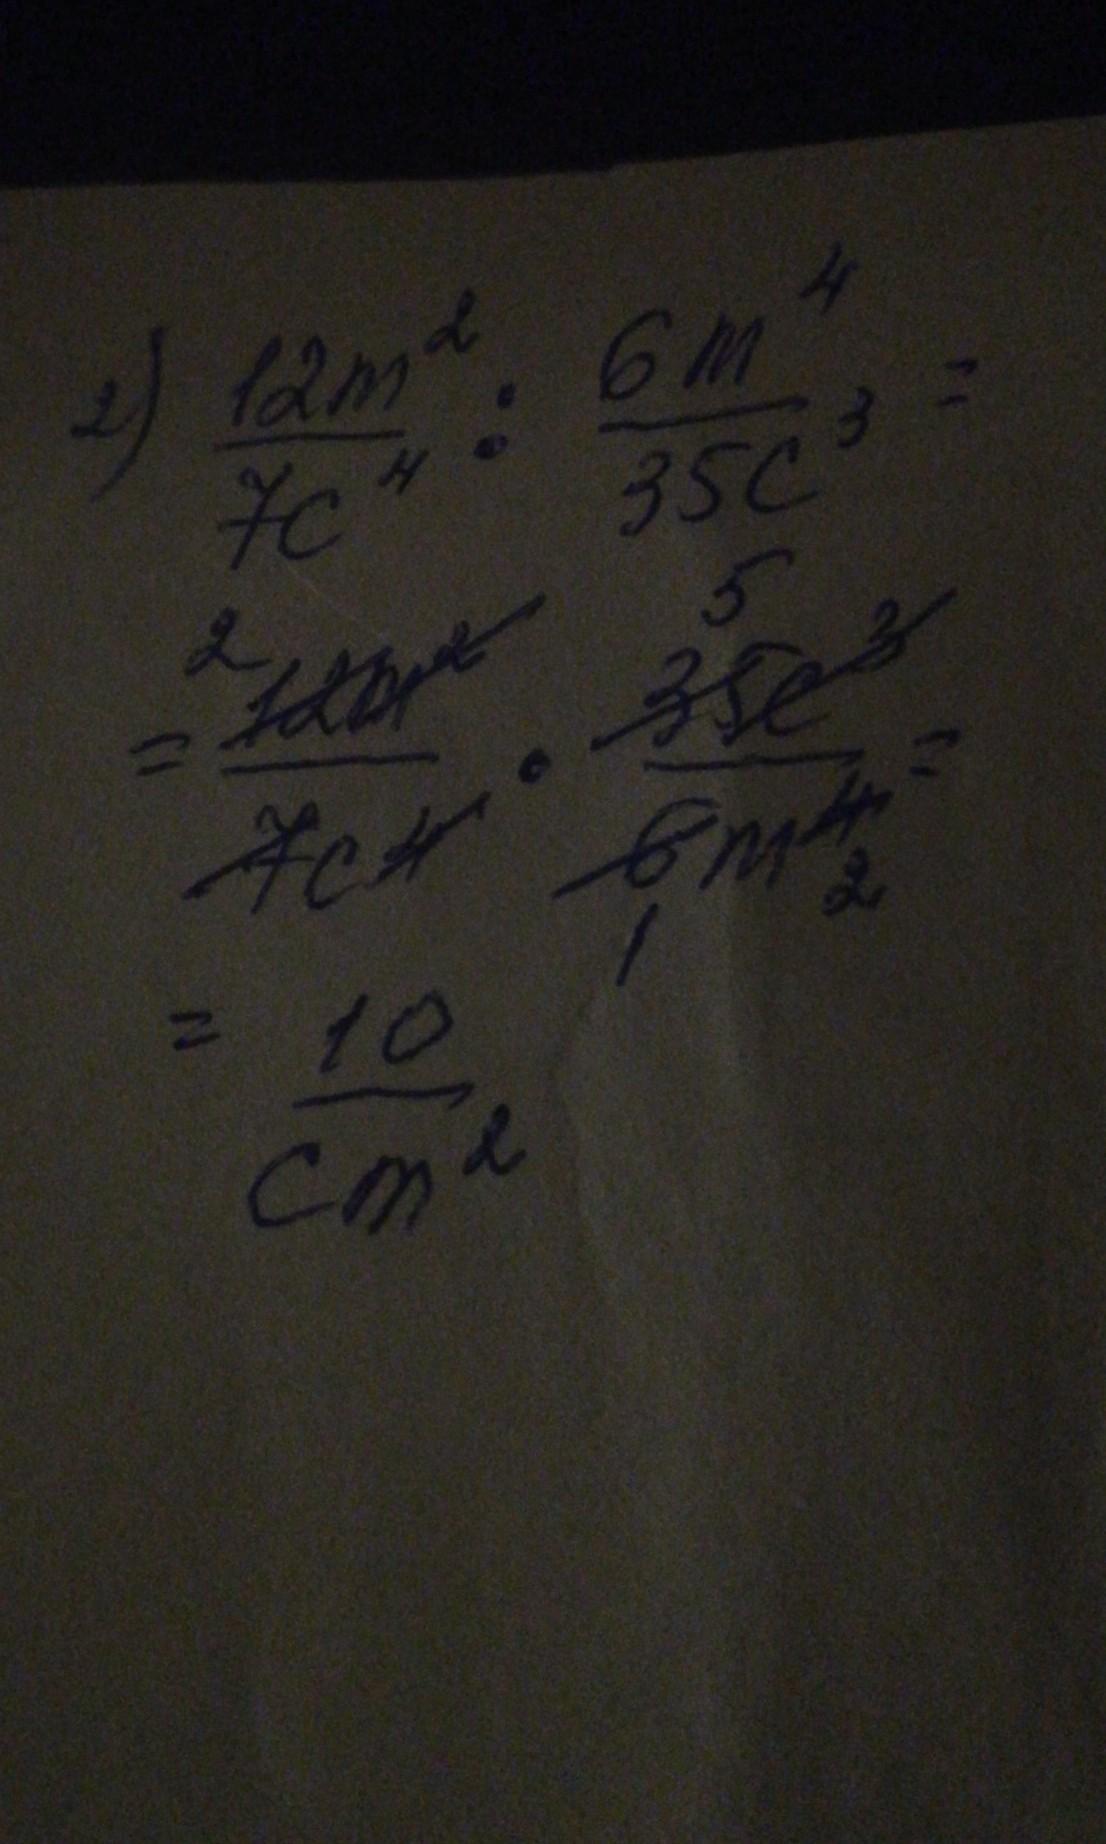 2) 12m² / 7c⁴ : 6m⁴ / 35c³ =
= 2 12m² / 7c⁴ · 5 35c³ / 6m⁴ 1 2 =
= 10 / cm²